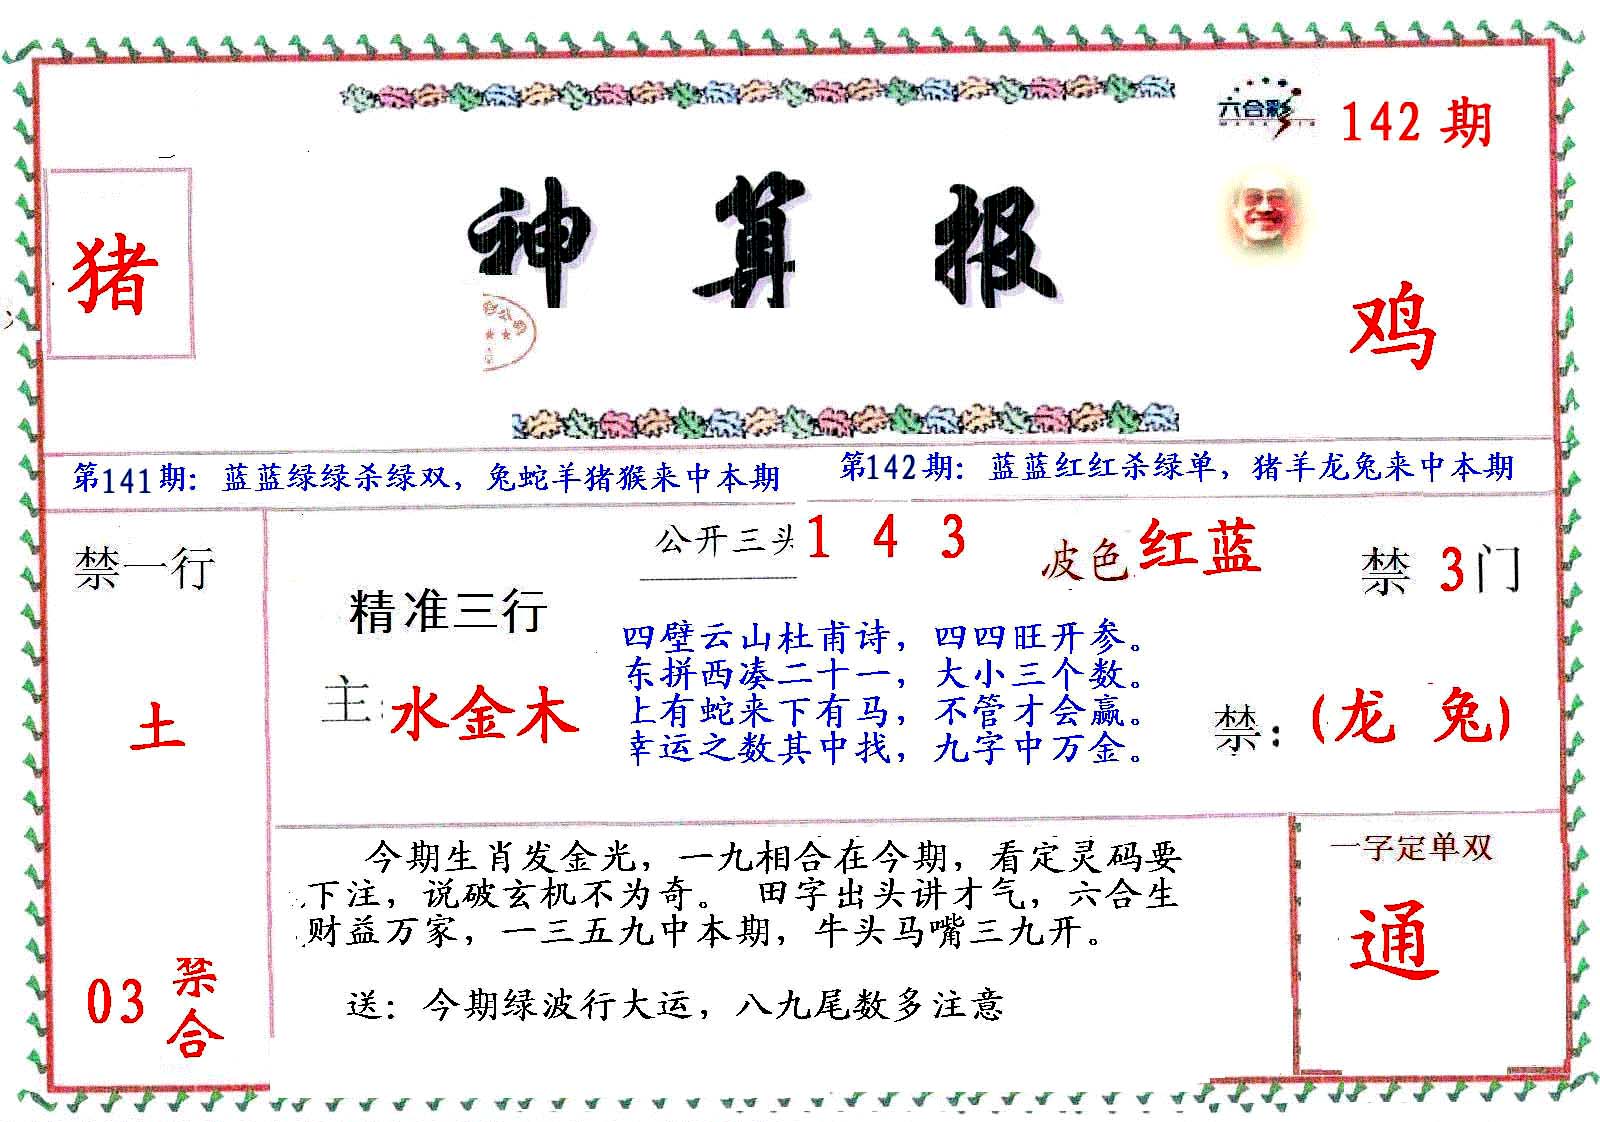 六合彩
142期
猪
神算报
鸡
第141期：蓝蓝绿绿杀绿双，兔蛇羊猪猴来中本期
第142期：蓝蓝红红杀绿单，猪羊龙兔来中本期
禁一行
土
03
禁
合
公开三头 1 4 3
波色 红蓝
禁 3门
精准三行
主：水金木
四壁云山杜甫诗，四四旺开参。
东拼西凑二十一，大小三个数。
上有蛇来下有马，不管才会赢。
幸运之数其中找，九字中万金。
禁：(龙 兔)
今期生肖发金光，一九相合在今期，看定灵码要
下注，说破玄机不为奇。 田字出头讲才气，六合生
财益万家，一三五九中本期，牛头马嘴三九开。
送：今期绿波行大运，八九尾数多注意
一字定单双
通